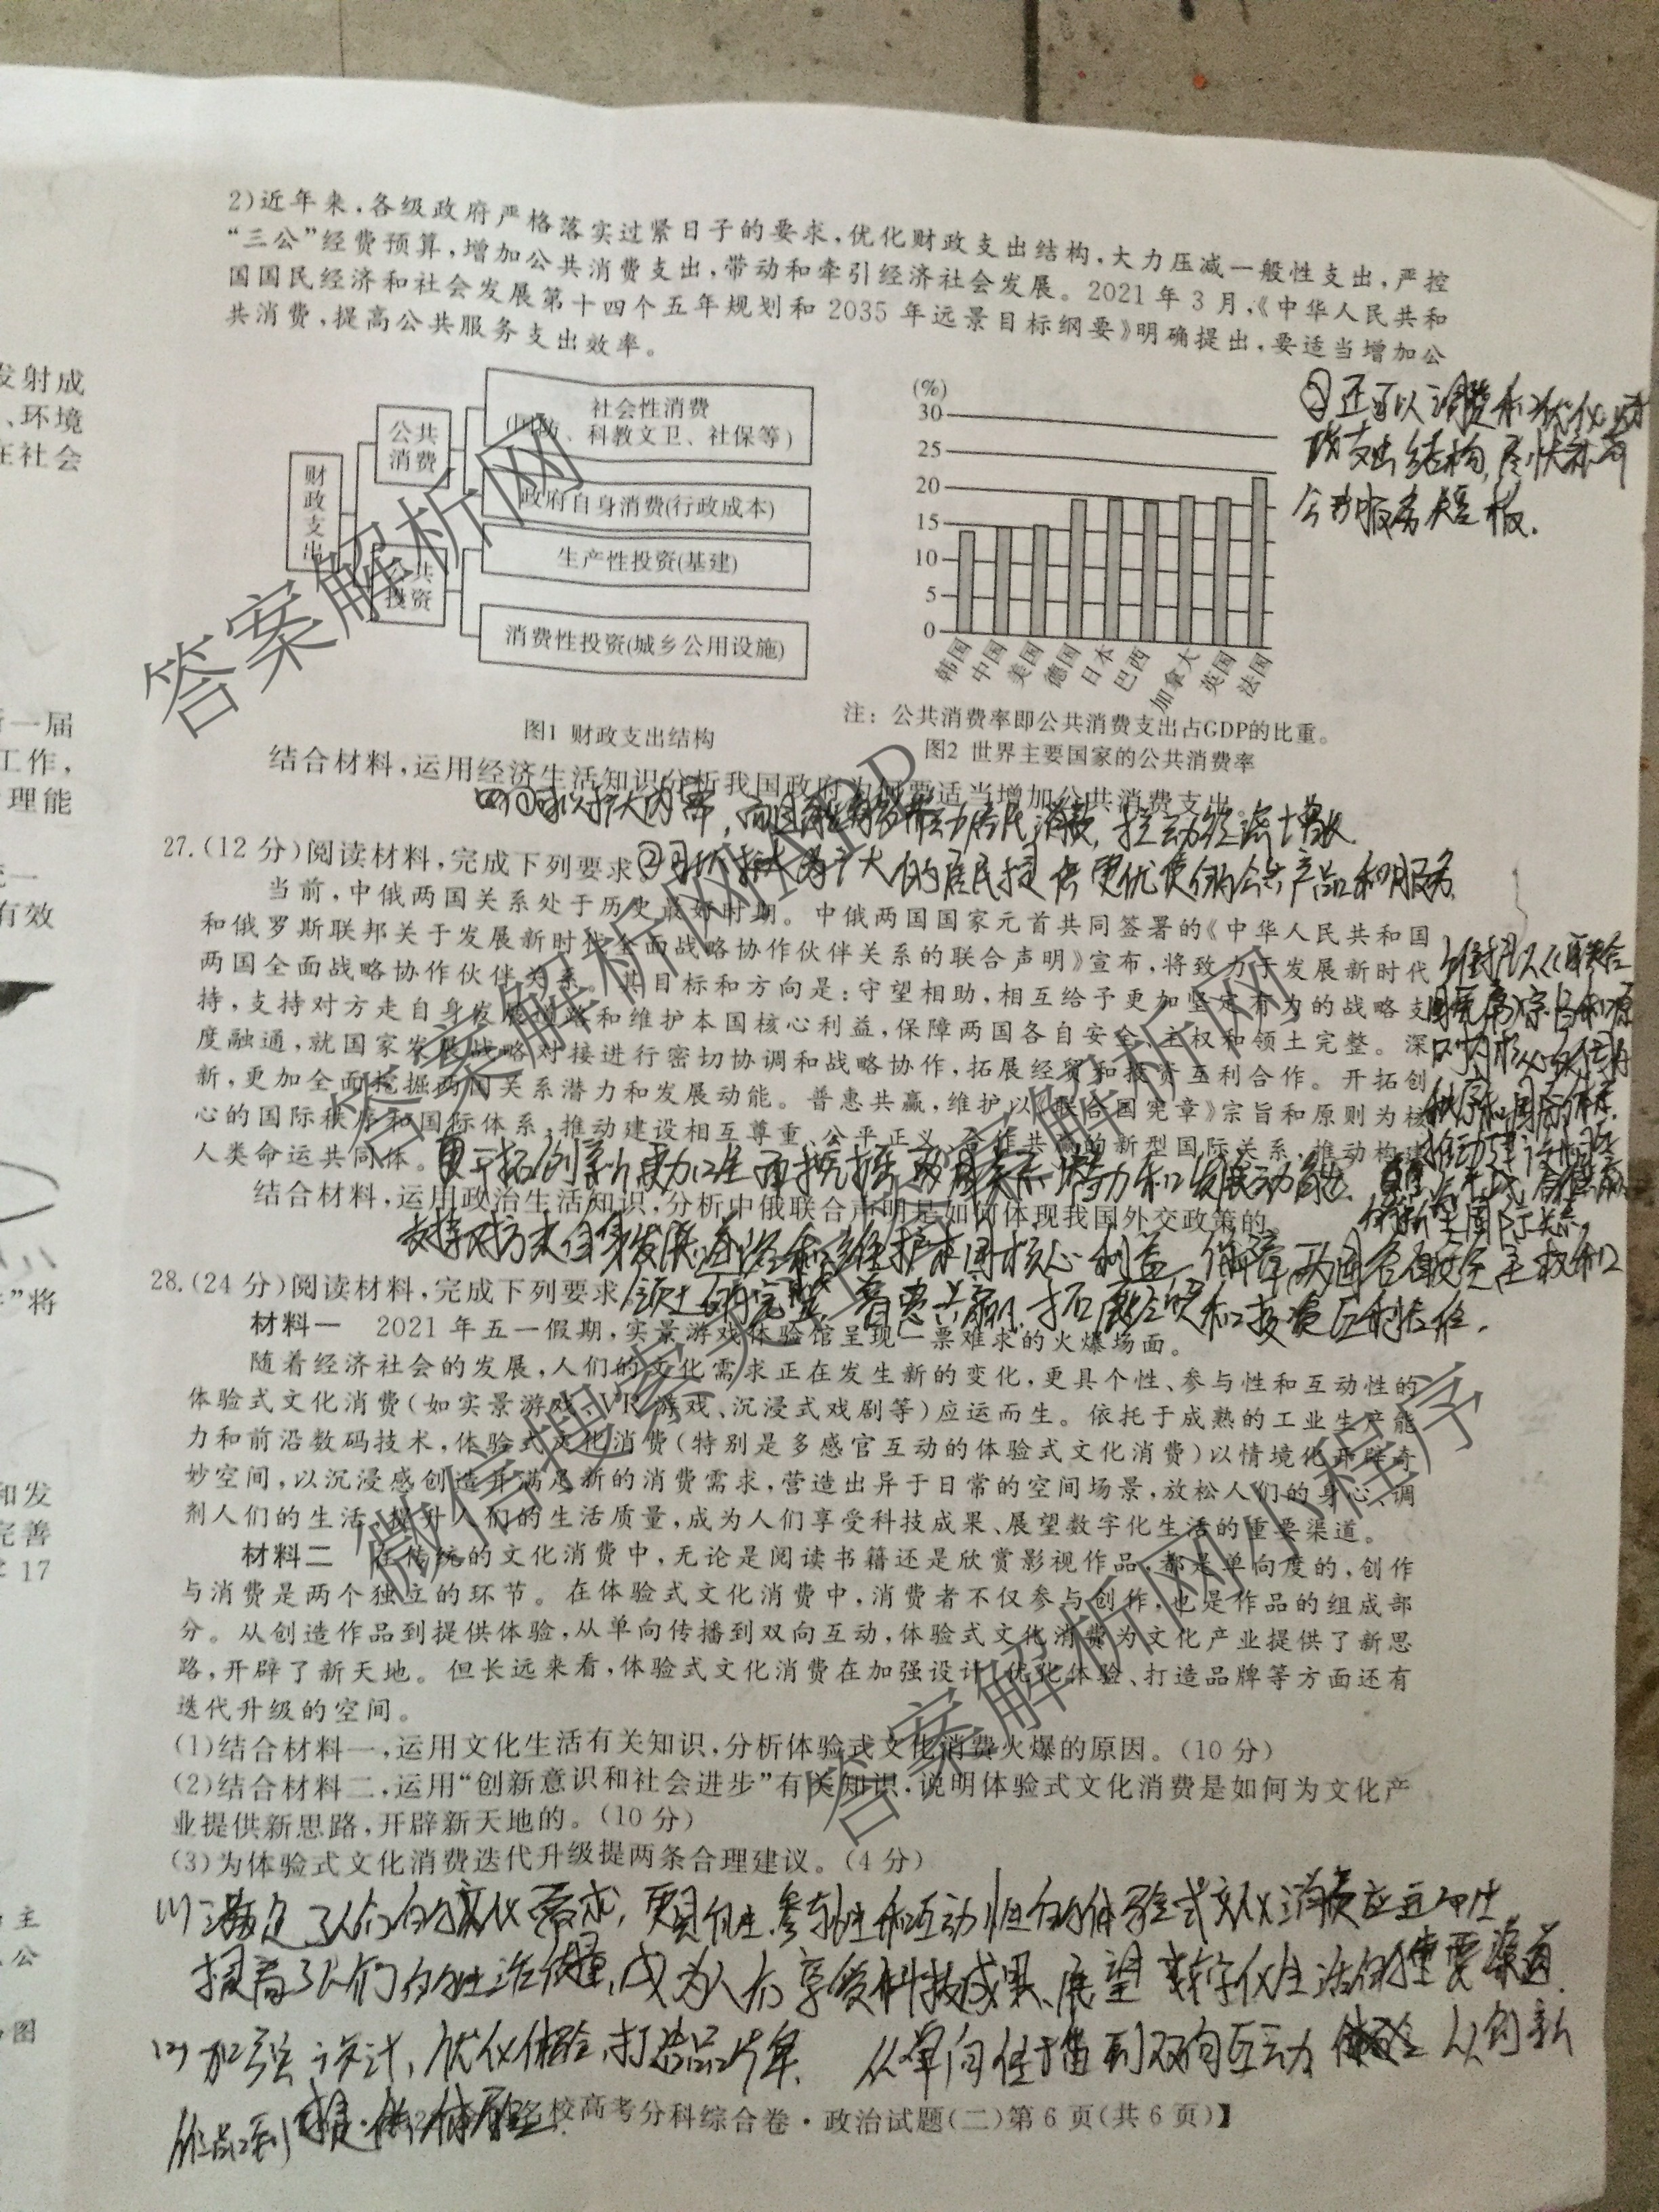 2)近年来,各级政府严格落实过紧日子的要求,优化财政支出结构,大力压减一般性支出,严控
“三公”经费预算,增加公共消费支出,带动和牵引经济社会发展。2021年3月,《中华人民共和
国国民经济和社会发展第十四个五年规划和2035年远景目标纲要》明确提出,要适当增加公
共消费,提高公共服务支出效率。
发射成
、环境
在社会
财政支出
公共
消费
公共
投资
社会性消费
(国防、科教文卫、社保等)
政府自身消费(行政成本)
生产性投资(基建)
消费性投资(城乡公用设施)
图1 财政支出结构
(%)
30
25
20
15
10
5
0
韩国
中国
美国
德国
日本
巴西
加拿大
英国
法国
注:公共消费率即公共消费支出占GDP的比重。
图2 世界主要国家的公共消费率
结构,尽快补齐
公共服务短板.
结合材料,运用经济生活知识分析我国政府为何要适当增加公共消费支出。
可以扩大内需,
带动居民消费,拉动经济增长
27.(12分)阅读材料,完成下列要求。
为广大的居民提供更优质的公共产品和服务
当前,中俄两国关系处于历史最好时期。中俄两国国家元首共同签署的《中华人民共和国
和俄罗斯联邦关于发展新时代全面战略协作伙伴关系的联合声明》宣布,将致力于发展新时代
两国全面战略协作伙伴关系。其目标和方向是:守望相助,相互给予更加坚定有力的战略支
持,支持对方走自身发展道路和维护本国核心利益,保障两国各自安全、主权和领土完整。深
度融通,就国家发展战略对接进行密切协调和战略协作,拓展经贸和投资互利合作。开拓创
新,更加全面挖掘两国关系潜力和发展动能。普惠共赢,维护以《联合国宪章》宗旨和原则为核
心的国际秩序和国际体系,推动建设相互尊重、公平正义、合作共赢的新型国际关系,推动构建
人类命运共同体。
维护以《联合
国宪章》宗旨和原
秩序和国际体系.
新型国际关系
结合材料,运用政治生活知识,分析中俄联合声明是如何体现我国外交政策的。
支持对方走自身发展道路和维护本国核心利益 保障两国各自安全主权和
28.(24分)阅读材料,完成下列要求。
领土的完整 普惠共赢 拓展经贸和投资互利合作.
材料一 2021年五一假期,实景游戏体验馆呈现一票难求的火爆场面。
随着经济社会的发展,人们的文化需求正在发生新的变化,更具个性、参与性和互动性的
体验式文化消费(如实景游戏、VR游戏、沉浸式戏剧等)应运而生。依托于成熟的工业生产能
力和前沿数码技术,体验式文化消费(特别是多感官互动的体验式文化消费)以情境化开辟奇
妙空间,以沉浸感创造并满足新的消费需求,营造出异于日常的空间场景,放松人们的身心、调
剂人们的生活、提升人们的生活质量,成为人们享受科技成果、展望数字化生活的重要渠道。
材料二 在传统的文化消费中,无论是阅读书籍还是欣赏影视作品,都是单向度的,创作
与消费是两个独立的环节。在体验式文化消费中,消费者不仅参与创作,也是作品的组成部
分。从创造作品到提供体验,从单向传播到双向互动,体验式文化消费为文化产业提供了新思
路,开辟了新天地。但长远来看,体验式文化消费在加强设计、优化体验、打造品牌等方面还有
迭代升级的空间。
(1)结合材料一,运用文化生活有关知识,分析体验式文化消费火爆的原因。(10分)
(2)结合材料二,运用“创新意识和社会进步”有关知识,说明体验式文化消费是如何为文化产
业提供新思路,开辟新天地的。(10分)
(3)为体验式文化消费迭代升级提两条合理建议。(4分)
(1)满足了人们的文化需求,更具个性、参与性和互动性的体验式文化消费应运而生
提高了人们的生活质量,成为人们享受科技成果、展望数字化生活的重要渠道.
(2)加强设计,优化体验,打造品牌. 从单向传播到双向互动 从创新
作品到提供体验.
名校高考分科综合卷·政治试题(二)第6页(共6页)】
新一届
工作,
理能
有效
”将
和发
完善
17
主
公
图
答案解析网
答案解析网APP
微信搜索
答案解析网
答案解析网小程序